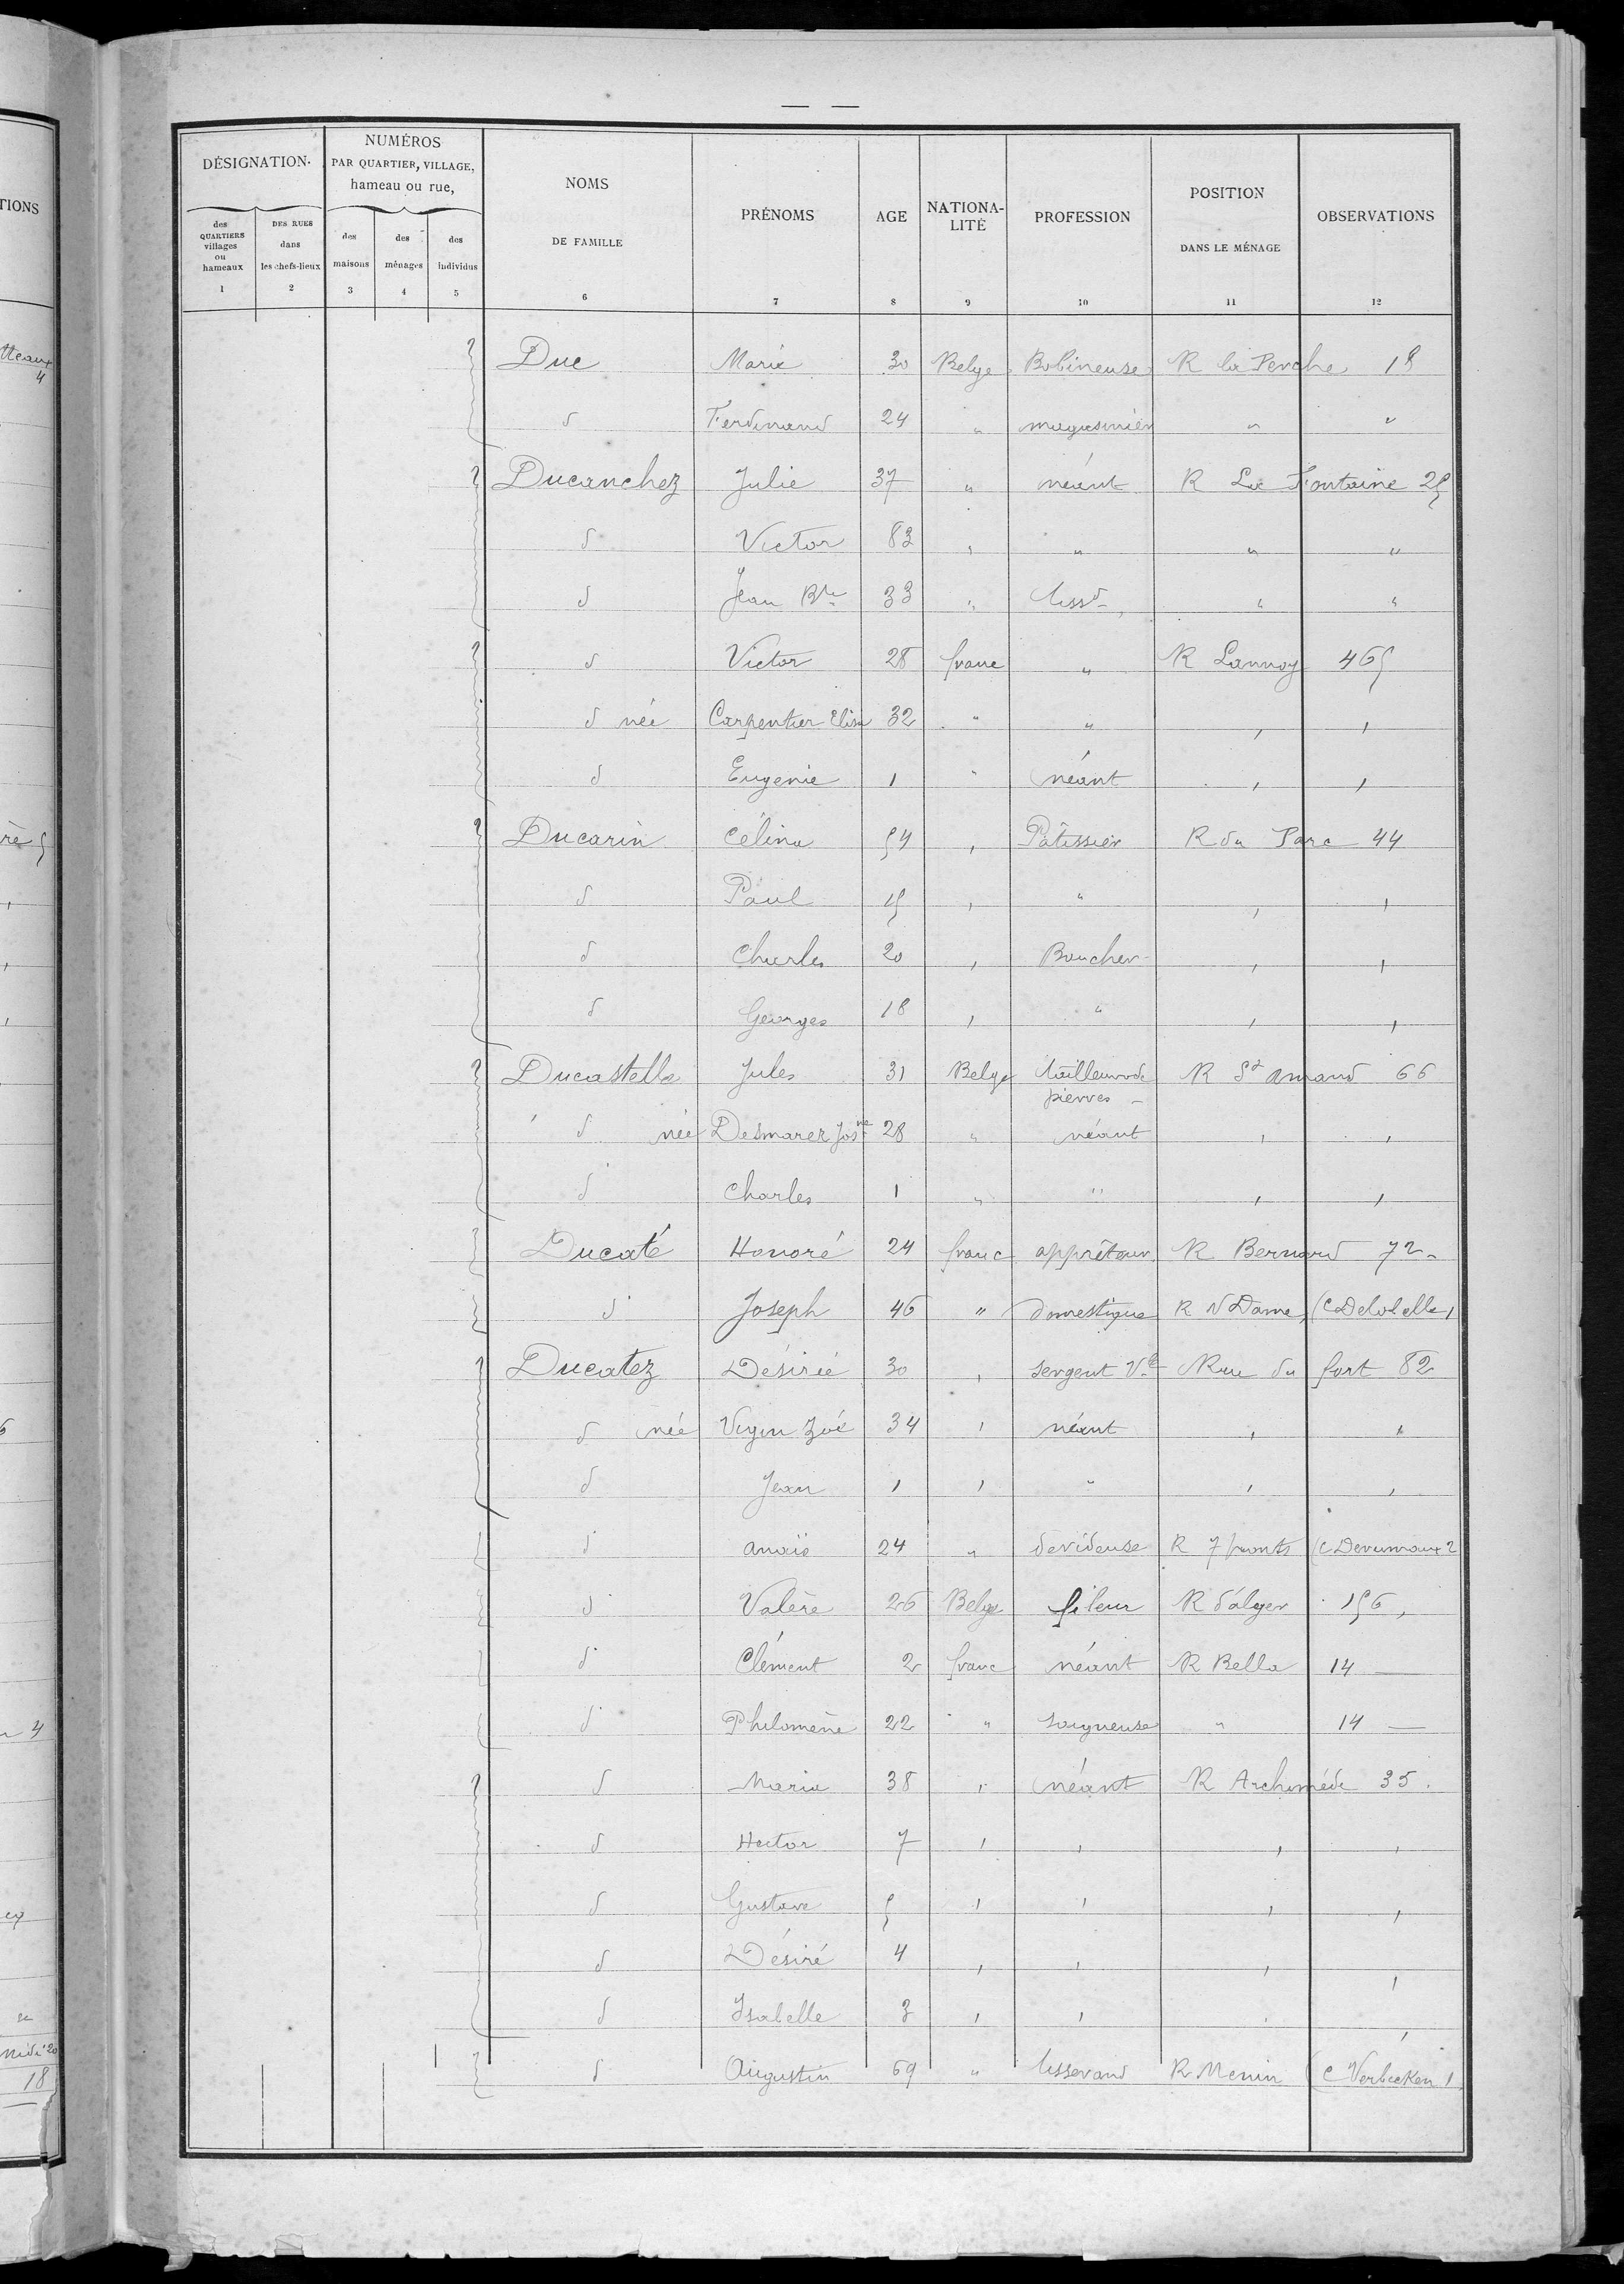 — —
DÉSIGNATION
NUMÉROS
PAR QUARTIER, VILLAGE,
hameau ou rue,
NOMS
DE FAMILLE
PRÉNOMS
AGE
NATIONA-
LITÉ
PROFESSION
POSITION
DANS LE MÉNAGE
OBSERVATIONS
des
QUARTIERS
villages
ou
hameaux
DES RUES
dans
les chefs-lieux
des
maisons
des
ménages
des
individus
1 2 3 4 5 6 7 8 9 10 11 12
Duc Marie 30 Belge Bobineuse R la Perche 18
d Ferdinand 24 " magasinier " "
Ducanchez Julie 37 " néant R La Fontaine 25
d Victor 83 " " " "
d Jean Bte 33 " tissd " "
d Victor 28 franc " R Lannoy 465
d née Carpentier Elisa 32 " " " "
d Eugenie 1 " néant " "
Ducarin Célina 54 " Pâtissier R du Parc 44
d Paul 15 " " " "
d Charles 20 " Boucher " "
d Georges 18 " " " "
Ducastelle Jules 31 Belge tailleur de pierres R St Amand 66
d née Desmarez Josne 28 " néant " "
d Charles 1 " " " "
Ducaté Honoré 24 franc apprêteur R Bernard 72
d Joseph 46 " domestique R N Dame (C Delobelle 1
Ducatez Désirée 30 " sergent Vle Rue du fort 82
d née Zoé 34 " néant " "
d Jean 1 " " " "
d Anaïs 24 " devideuse R 7 ponts (C 2
d Valère 26 Belge fileur R d'alger 156
d Clément 2 franc néant R Bella 14 —
d Philomène 22 " soigneuse " 14 —
d Maria 38 " néant R Archimède 35
d Hector 7 " " " "
d Gustave 5 " " " "
d Désiré 4 " " " "
d Isabelle 3 " " " "
d Augustin 69 " tisserand R Menin (C Verbecken 1